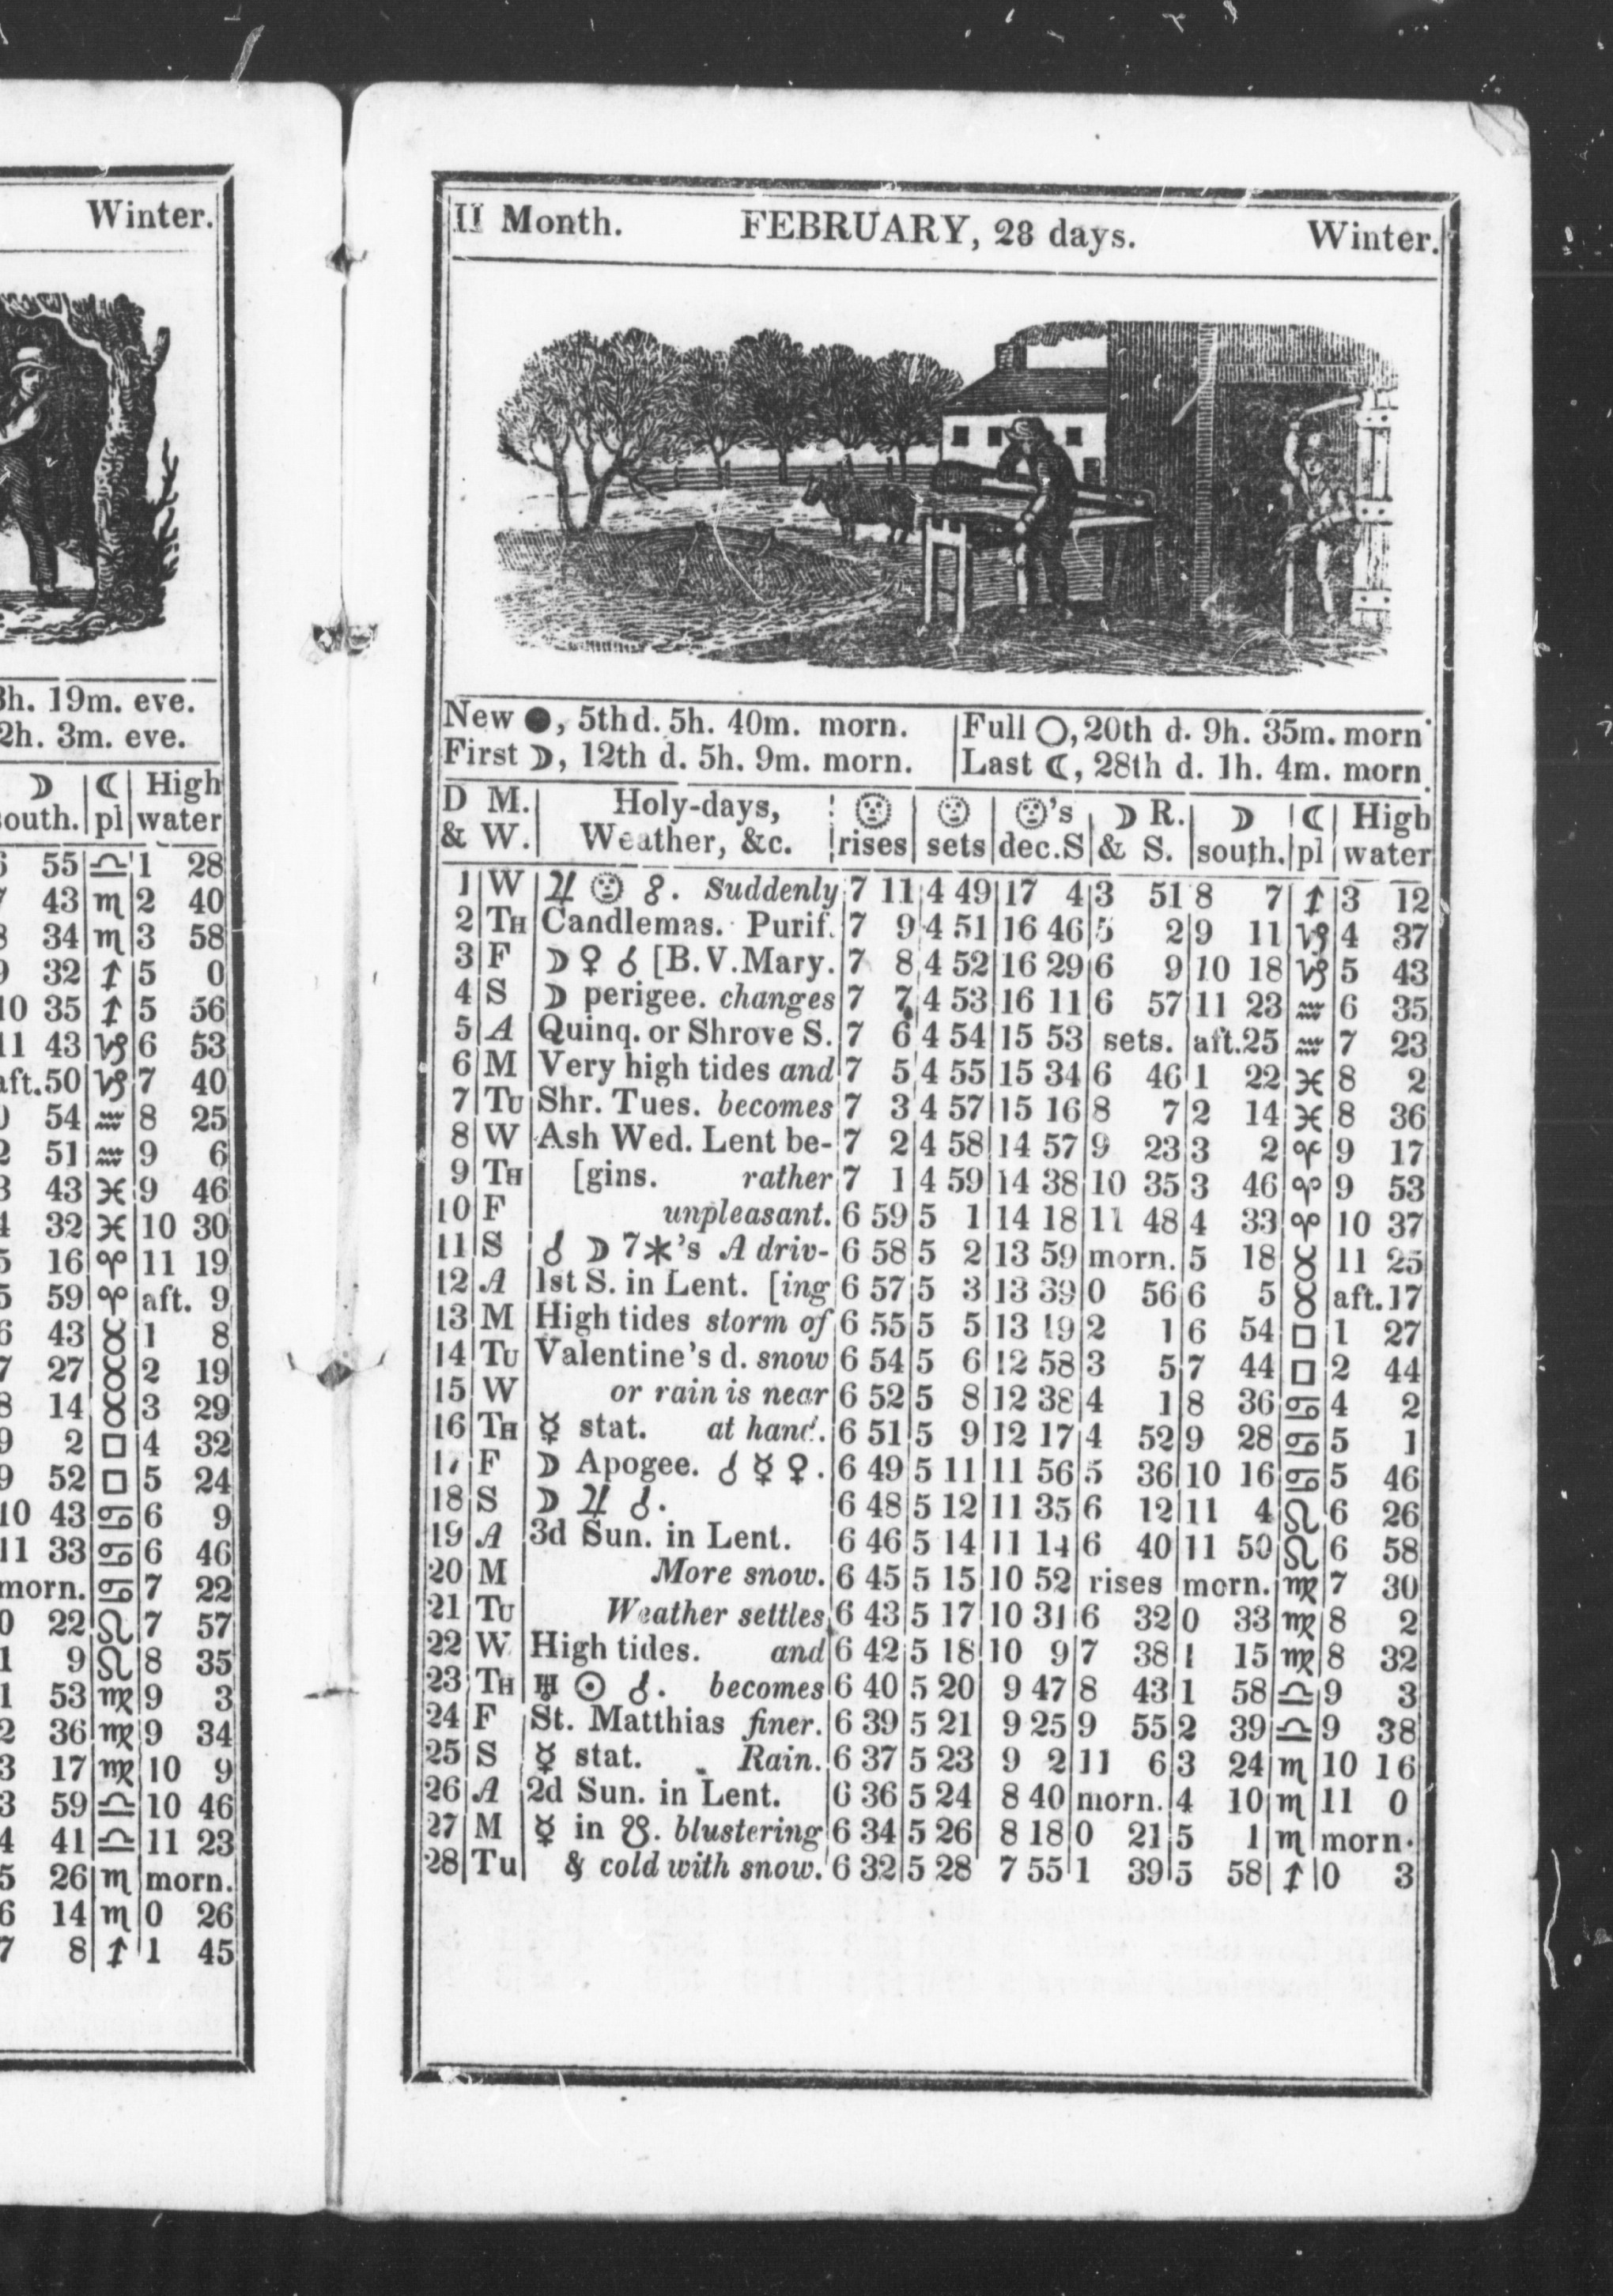 Winter.
3h. 19m. eve.
2h. 3m. eve.
☽ |☾| High
south.|pl|water
55|♎|1 28
43|♏|2 40
34|♏|3 58
32|♐|5 0
10 35|♐|5 56
11 43|♑|6 53
aft.50|♑|7 40
54|♒|8 25
51|♒|9 6
43|♓|9 46
32|♓|10 30
16|♈|11 19
59|♈|aft. 9
43|♉|1 8
27|♉|2 19
14|♉|3 29
2|□|4 32
52|□|5 24
10 43|♋|6 9
11 33|♋|6 46
morn.|♋|7 22
0 22|♌|7 57
1 9|♌|8 35
1 53|♍|9 3
2 36|♍|9 34
3 17|♍|10 9
3 59|♎|10 46
4 41|♎|11 23
5 26|♏|morn.
6 14|♏|0 26
7 8|♐|1 45
II Month. FEBRUARY, 28 days. Winter.
New ●, 5th d. 5h. 40m. morn. |Full ○, 20th d. 9h. 35m. morn
First ☽, 12th d. 5h. 9m. morn. |Last ☾, 28th d. 1h. 4m. morn.
D M.| Holy-days, |☉|☉|☉'s|☽ R.|☽|☾| High
& W.| Weather, &c. |rises|sets|dec.S|& S.|south.|pl|water
1|W|♃ ☉ ☍. Suddenly|7 11|4 49|17 4|3 51|8 7|♐|3 12
2|TH|Candlemas. Purif.|7 9|4 51|16 46|5 2|9 11|♑|4 37
3|F|☽ ♀ ☌ [B.V.Mary.|7 8|4 52|16 29|6 9|10 18|♑|5 43
4|S|☽ perigee. changes|7 7|4 53|16 11|6 57|11 23|♒|6 35
5|A|Quinq. or Shrove S.|7 6|4 54|15 53|sets.|aft.25|♒|7 23
6|M|Very high tides and|7 5|4 55|15 34|6 46|1 22|♓|8 2
7|TU|Shr. Tues. becomes|7 3|4 57|15 16|8 7|2 14|♓|8 36
8|W|Ash Wed. Lent be-|7 2|4 58|14 57|9 23|3 2|♈|9 17
9|TH|[gins. rather|7 1|4 59|14 38|10 35|3 46|♈|9 53
10|F|unpleasant.|6 59|5 1|14 18|11 48|4 33|♈|10 37
11|S|☌ ☽ 7✶'s A driv-|6 58|5 2|13 59|morn.|5 18|♉|11 25
12|A|1st S. in Lent. [ing|6 57|5 3|13 39|0 56|6 5|♉|aft.17
13|M|High tides storm of|6 55|5 5|13 19|2 1|6 54|□|1 27
14|TU|Valentine's d. snow|6 54|5 6|12 58|3 5|7 44|□|2 44
15|W|or rain is near|6 52|5 8|12 38|4 1|8 36|♋|4 2
16|TH|☿ stat. at hand.|6 51|5 9|12 17|4 52|9 28|♋|5 1
17|F|☽ Apogee. ☌ ☿ ♀.|6 49|5 11|11 56|5 36|10 16|♋|5 46
18|S|☽ ♃ ☌.|6 48|5 12|11 35|6 12|11 4|♌|6 26
19|A|3d Sun. in Lent.|6 46|5 14|11 14|6 40|11 50|♌|6 58
20|M|More snow.|6 45|5 15|10 52|rises|morn.|♍|7 30
21|TU|Weather settles|6 43|5 17|10 31|6 32|0 33|♍|8 2
22|W|High tides. and|6 42|5 18|10 9|7 38|1 15|♍|8 32
23|TH|♅ ☉ ☌. becomes|6 40|5 20|9 47|8 43|1 58|♎|9 3
24|F|St. Matthias finer.|6 39|5 21|9 25|9 55|2 39|♎|9 38
25|S|☿ stat. Rain.|6 37|5 23|9 2|11 6|3 24|♏|10 16
26|A|2d Sun. in Lent.|6 36|5 24|8 40|morn.|4 10|♏|11 0
27|M|☿ in ☋. blustering|6 34|5 26|8 18|0 21|5 1|♏|morn.
28|Tu|& cold with snow.|6 32|5 28|7 55|1 39|5 58|♐|0 3